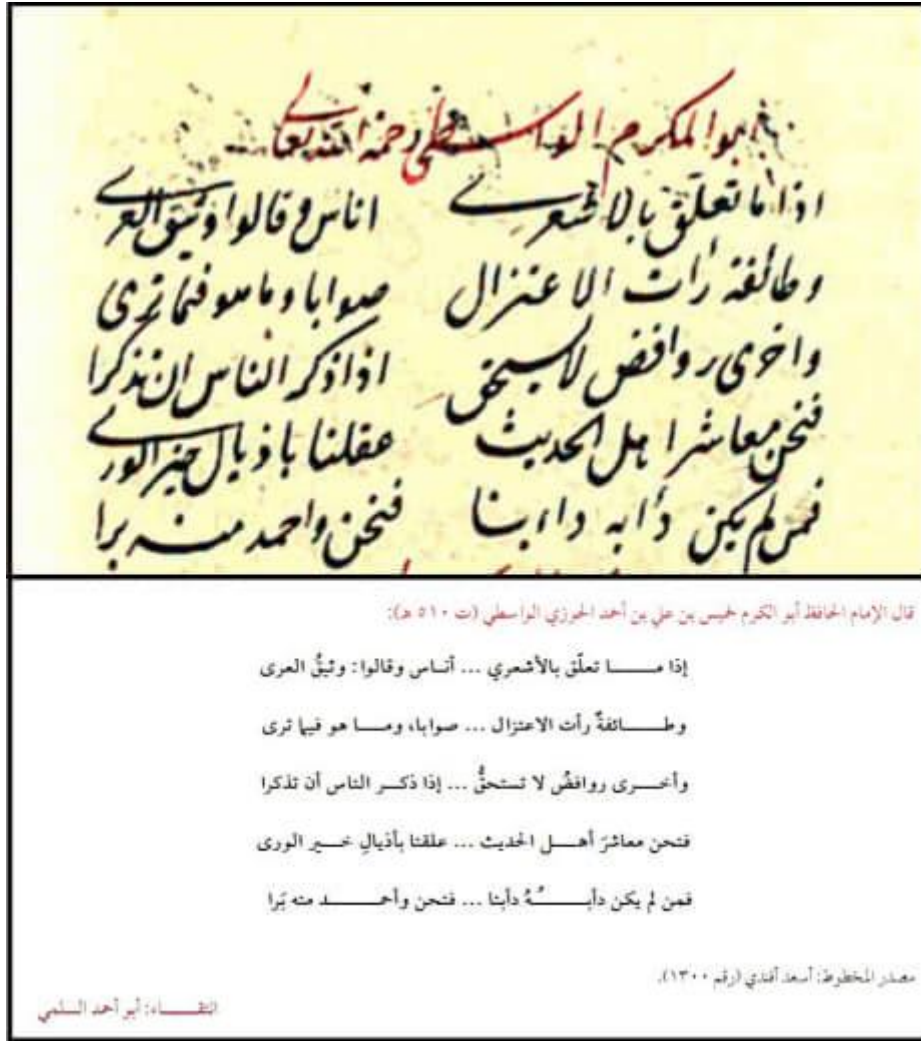 ابوالمكرم الواسطى رحمه الله تعالى
اذا ما تعلق بالاشعرے اناس و قالوا وثيق العرے
وطائفة رأت الاعتزال صوابا وما هو فيما ترى
واخرى روافض لا يستحق اذا ذكر الناس ان تذكرا
فنحن معاشر اهل الحديث عقلنا باذيال خير الورے
فمن لم يكن دأبه دأبنا فنحن واحمد منه برا
قال الإمام الحافظ أبو الكرم خميس بن علي بن أحمد الحوزي الواسطي (ت ٥١٠ هـ):
إذا مـــا تعلّق بالأشعري ... أنـاس وقالوا: وثيقُ العرى
وطـــائفةٌ رأت الاعتزال ... صوابا، ومـــا هو فيما ترى
وأخـــرى روافضُ لا تستحقُّ ... إذا ذكـــر الناس أن تذكرا
فنحن معاشرَ أهـــل الحديث ... علقنا بأذيالِ خـــير الورى
فمن لم يكن دأبـــُهُ دأبنا ... فنحن وأحمـــد منه بَرا
مصدر المخطوط: أسعد أفندي (رقم ١٣٠٠).
انتقـــاء: أبو أحمد السلمي